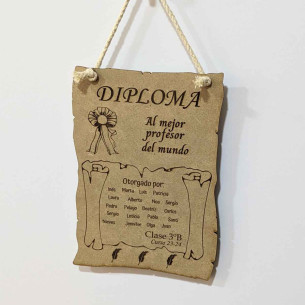 DIPLOMA
Al mejor
profesor
del mundo
Otorgado por:
Inés Marta Luis Patricia
Laura Alberto Noa Sergio
Pedro Pelayo Beatriz Carlos
Sergio Leticia Pablo Saúl
Jennifer Olga Juan
Clase 3ºB
Curso 23-24